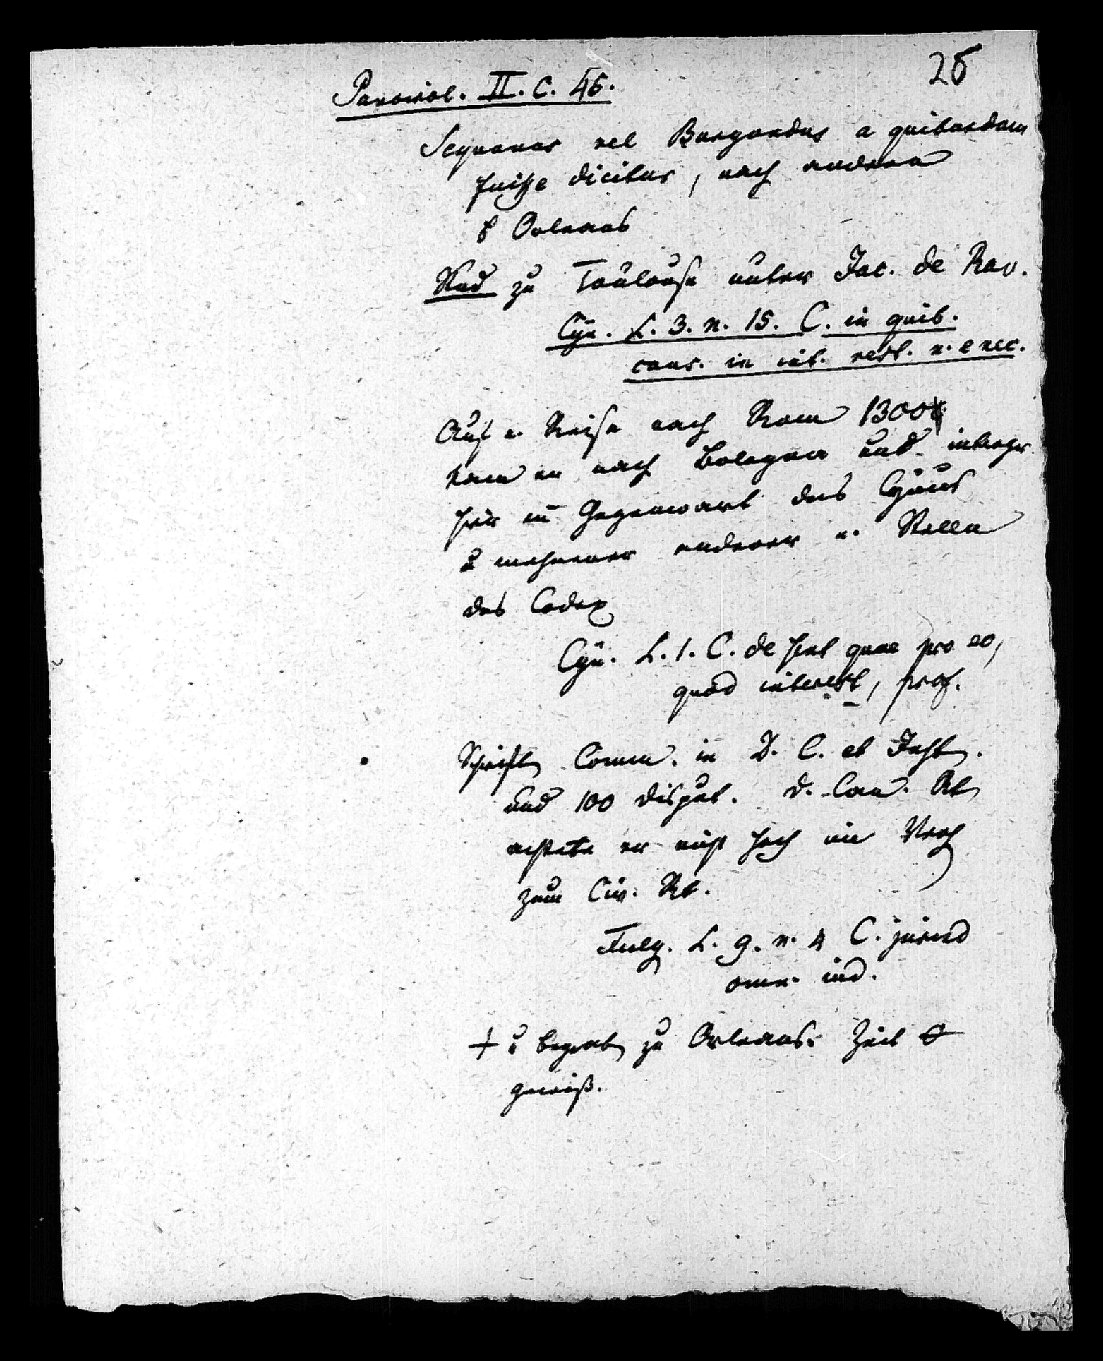 25
Panvirol. II. C. 46.
Sequanus vel Burgundus a quibusdam
fuiße dicitur, nach andern
Orleans
Stud zu Toulouse unter Jac. de Rav.
Cyn. L. 3. n. 15. C. in quib.
caus. in int. rest. n. e nec.
Auf e. Reise nach Rom 1300
kam er nach Bologna und
hier in Gegenwart des Cynus
u mehrerer anderer e. Stelle
des Codex
Cyn. L. 1. C. de sent quae pro eo,
quod interest, prof.
Schriften Comm. in D. C. et Inst.
und 100 disput. D. Can. Rt
achtete er nicht hoch im Vergl
zum Civ. Rt.
Fulg. L. 9. n. 4 C. jurend
omn. ind.
† u begrab zu Orleans. Zeit
gewiß.